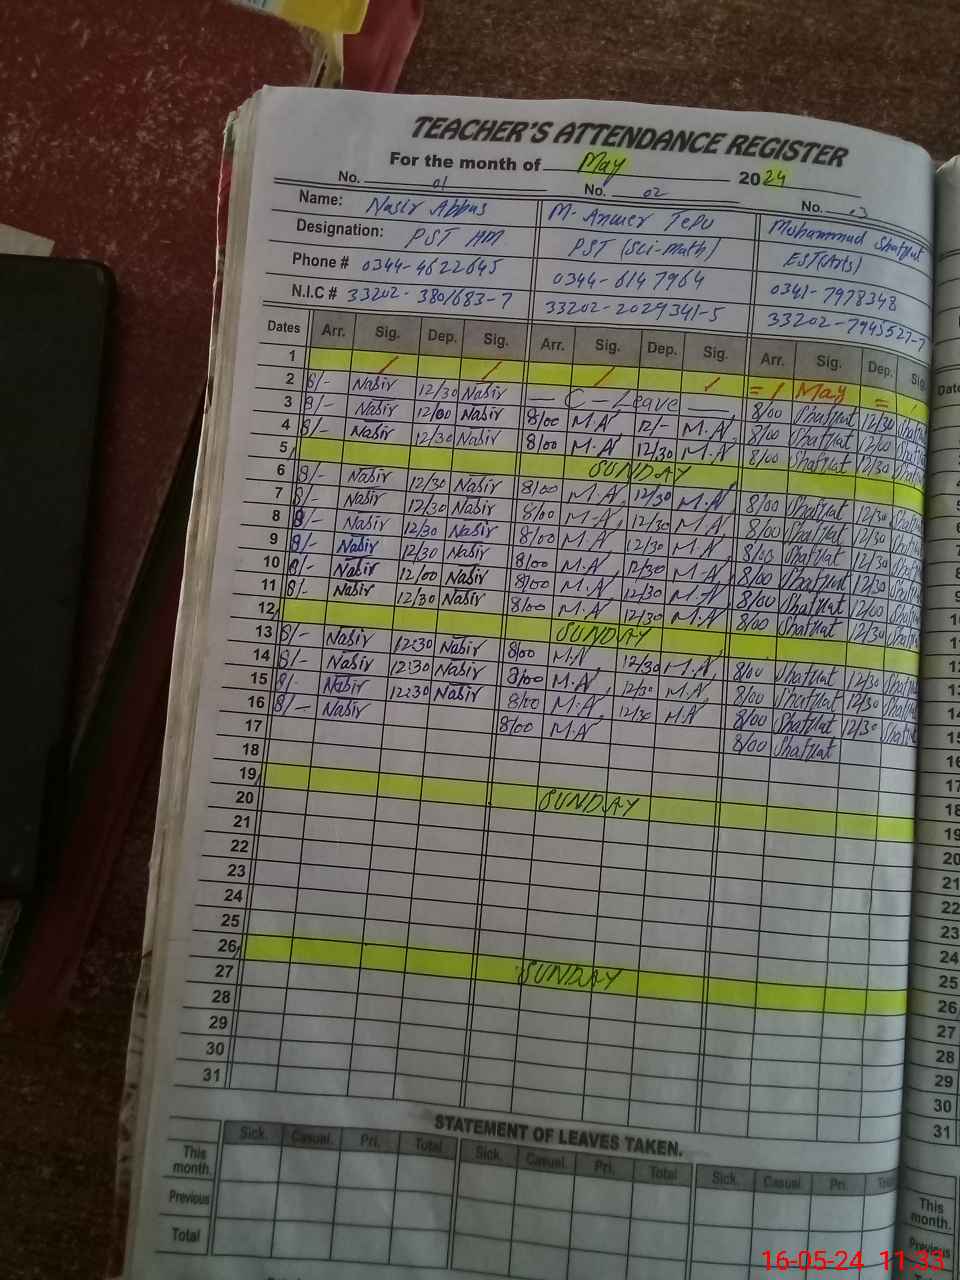 TEACHER'S ATTENDANCE REGISTER
For the month of May 2024
No. 01 No. 02 No. 03
Name: Nasir Abbas M. Anwer Tepu Muhammad Shafqat
Designation: PST AM PST (Sci-Math) EST(Arts)
Phone # 0344-4622645 0344-6147964 0341-7978348
N.I.C # 33202-3801683-7 33202-2029341-5 33202-7945527-7
Dates Arr. Sig. Dep. Sig. Arr. Sig. Dep. Sig. Arr. Sig. Dep. Sig.
1 = 1 May =
2 8/- Nasir 12/30 Nasir — C — Leave — 8/00 Shafqat 12/30 Shafqat
3 8/- Nasir 12/00 Nasir 8/00 M.A 12/- M.A 8/00 Shafqat 12/00 Shafqat
4 8/- Nasir 12/30 Nasir 8/00 M.A 12/30 M.A 8/00 Shafqat 12/30 Shafqat
5 SUNDAY
6 8/- Nasir 12/30 Nasir 8/00 M.A 12/30 M.A 8/00 Shafqat 12/30 Shafqat
7 8/- Nasir 12/30 Nasir 8/00 M.A 12/30 M.A 8/00 Shafqat 12/30 Shafqat
8 8/- Nasir 12/30 Nasir 8/00 M.A 12/30 M.A 8/00 Shafqat 12/30 Shafqat
9 8/- Nasir 12/30 Nasir 8/00 M.A 12/30 M.A 8/00 Shafqat 12/30 Shafqat
10 8/- Nasir 12/00 Nasir 8/00 M.A 12/30 M.A 8/00 Shafqat 12/00 Shafqat
11 8/- Nasir 12/30 Nasir 8/00 M.A 12/30 M.A 8/00 Shafqat 12/30 Shafqat
12 SUNDAY
13 8/- Nasir 12:30 Nasir 8/00 M.A 12/30 M.A 8/00 Shafqat 12/30 Shafqat
14 8/- Nasir 12:30 Nasir 8/00 M.A 12/30 M.A 8/00 Shafqat 12/30 Shafqat
15 8/- Nasir 12:30 Nasir 8/00 M.A 12/30 M.A 8/00 Shafqat 12/30 Shafqat
16 8/- Nasir 8/00 M.A 8/00 Shafqat
17
18
19 SUNDAY
20
21
22
23
24
25
26 SUNDAY
27
28
29
30
31
STATEMENT OF LEAVES TAKEN.
Sick. Casual. Pri. Total Sick. Casual Pri. Total Sick. Casual Pri. Total
This month.
Previous
Total
This month.
Previous
16-05-24 11:33